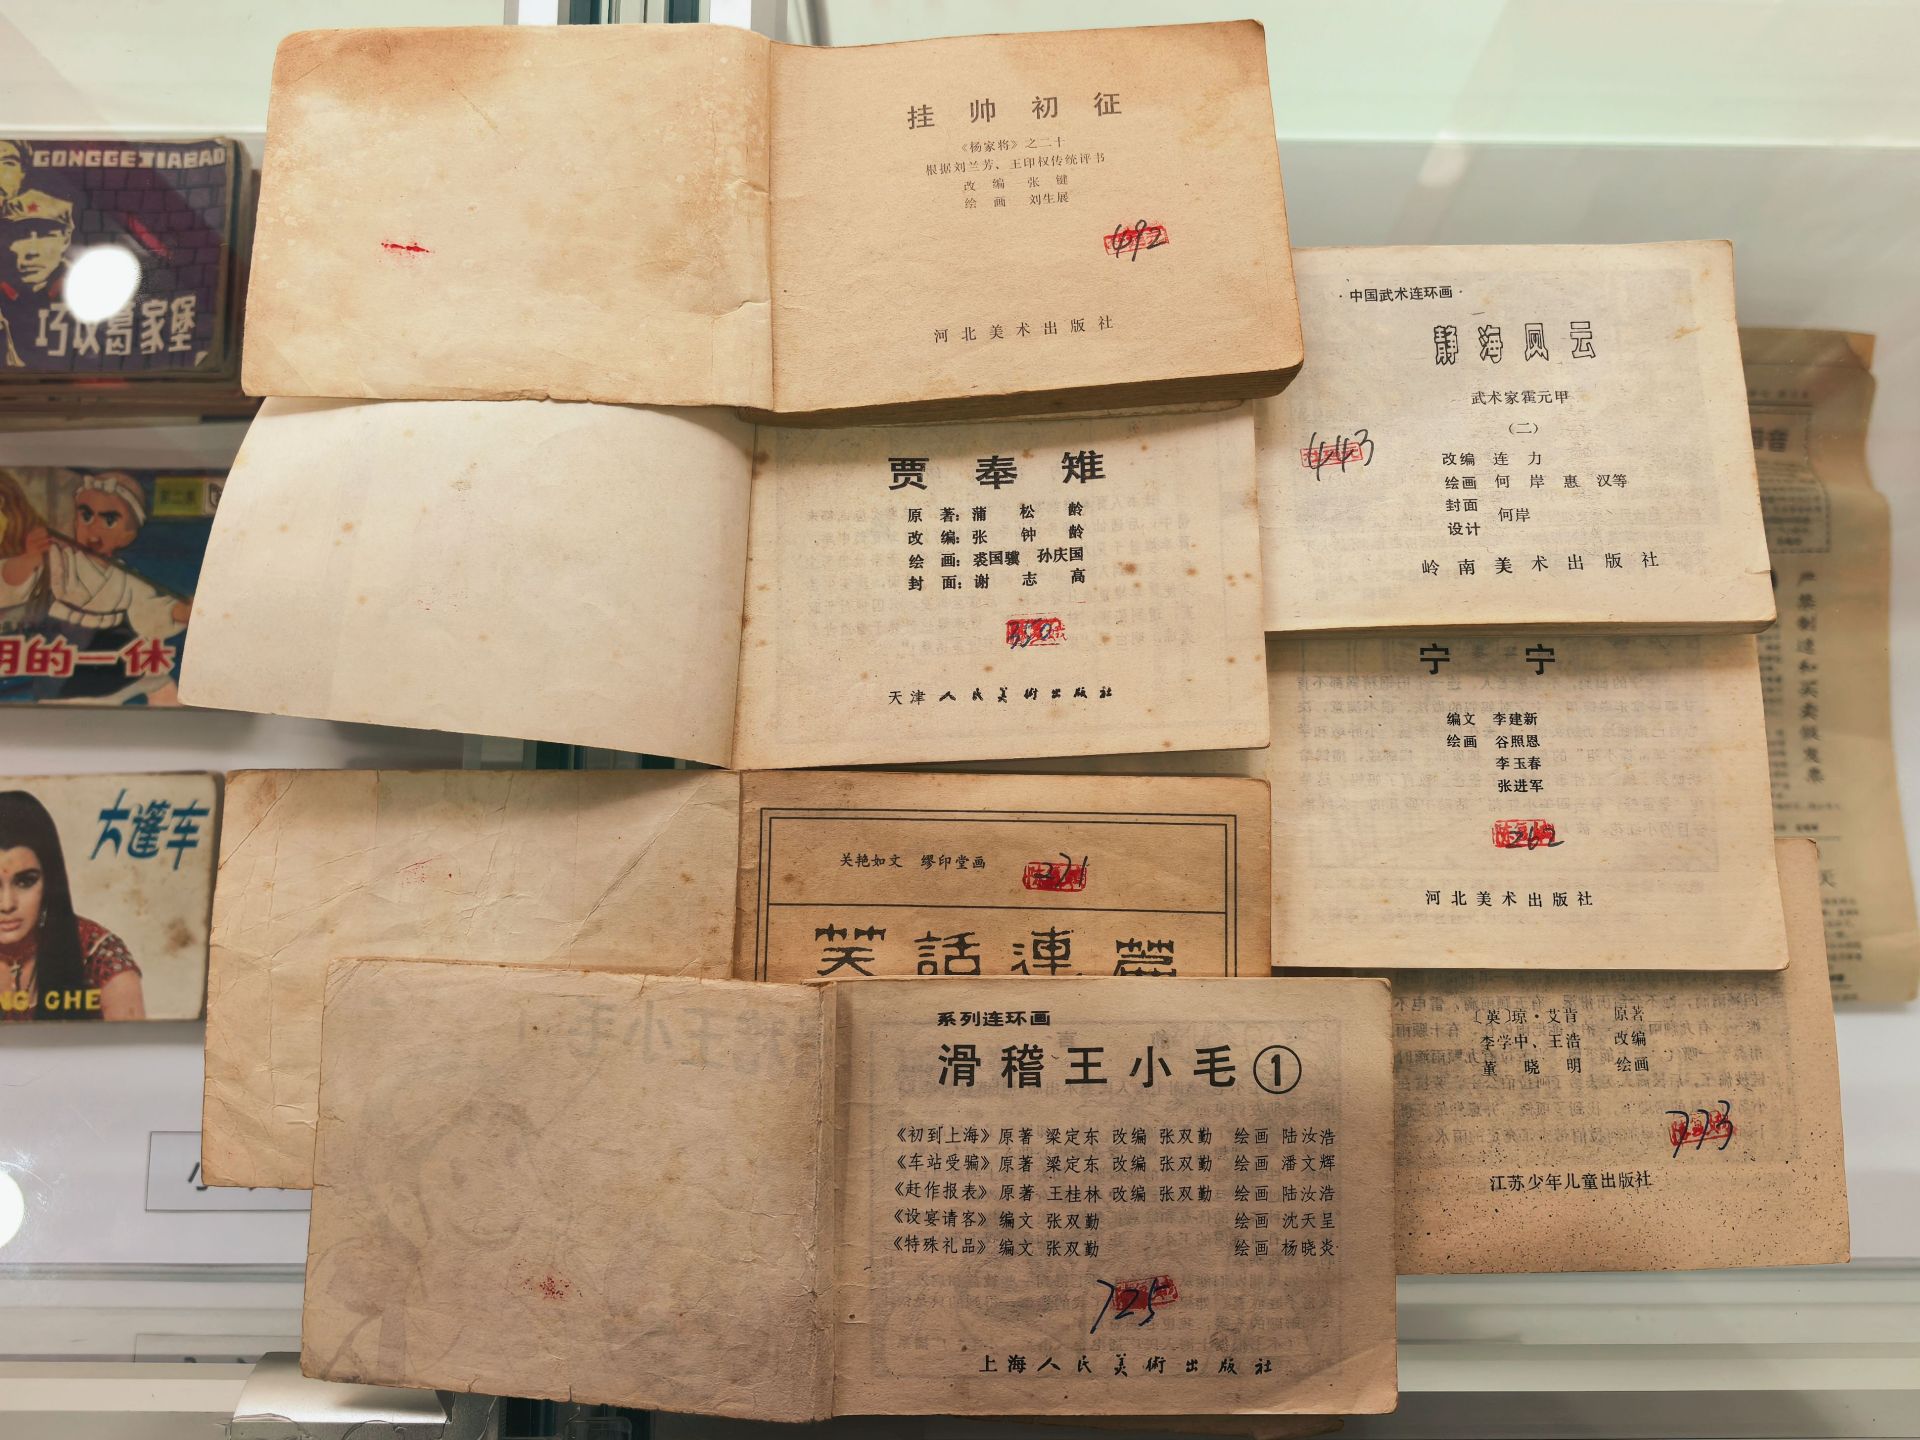 挂帅初征
《杨家将》之二十
根据刘兰芳、王印权传统评书
改编 张键
绘画 刘生展
492
河北美术出版社
GONGGEJIABAO
巧取葛家堡
·中国武术连环画·
静海风云
武术家霍元甲
(二)
改编 连力
绘画 何岸 惠汉等
封面
设计 何岸
443
岭南美术出版社
贾奉雉
原著：蒲松龄
改编：张钟龄
绘画：裘国骥 孙庆国
封面：谢志高
350
天津人民美術出版社
第二集
明的一休
宁宁
编文 李建新
绘画 谷照恩
李玉春
张进军
262
河北美术出版社
严禁制造和买卖假发票
大篷车
NG CHE
关艳如文 缪印堂画
271
笑話連篇
〔英〕琼·艾肯 原著
李学中、王浩 改编
董晓明 绘画
773
江苏少年儿童出版社
系列连环画
滑稽王小毛①
《初到上海》原著 梁定东 改编 张双勤 绘画 陆汝浩
《车站受骗》原著 梁定东 改编 张双勤 绘画 潘文辉
《赶作报表》原著 王桂林 改编 张双勤 绘画 陆汝浩
《设宴请客》编文 张双勤 绘画 沈天呈
《特殊礼品》编文 张双勤 绘画 杨晓炎
725
上海人民美術出版社